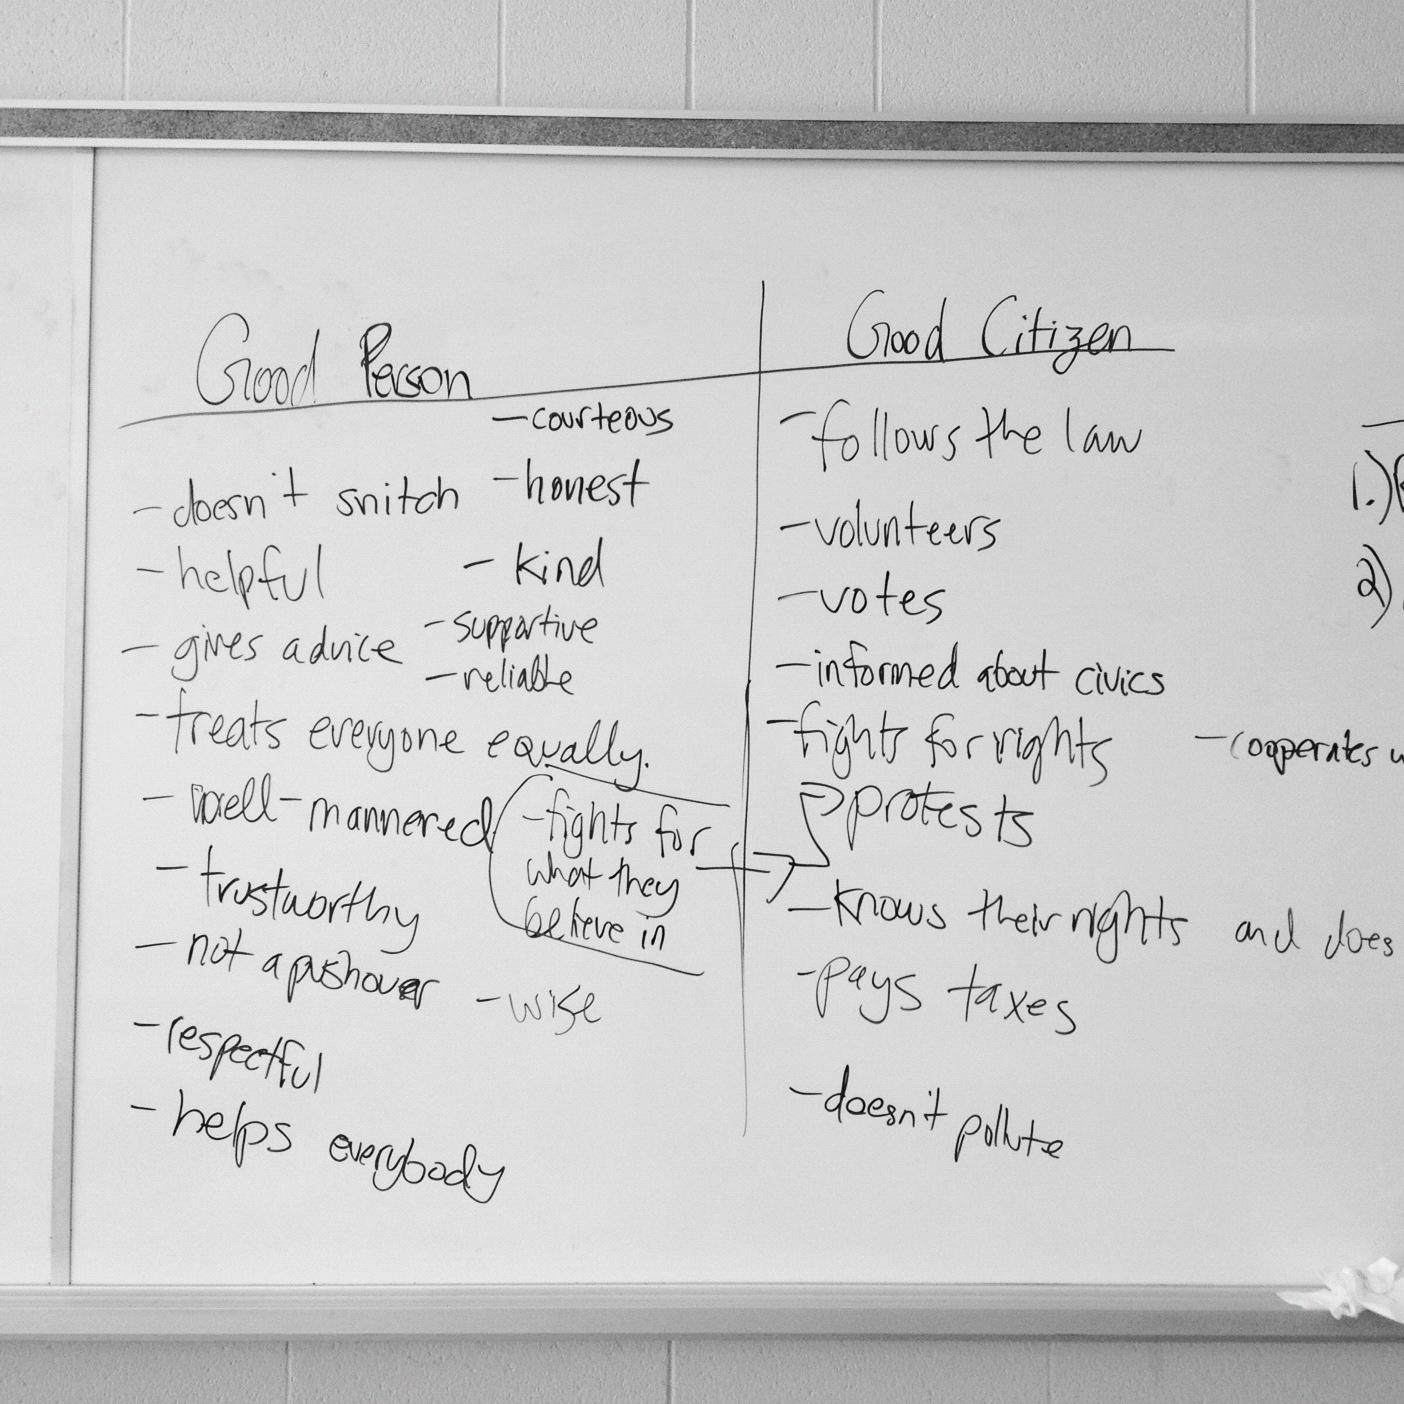 Good Person
- courteous
- doesn't snitch
- honest
- helpful
- kind
- gives advice
- supportive
- reliable
- treats everyone equally.
- well-mannered
- fights for
what they
believe in
- trustworthy
- not a pushover
- wise
- respectful
- helps everybody
Good Citizen
- follows the law
- volunteers
- votes
- informed about civics
- fights for rights
protests
- knows their rights and does
- pays taxes
- doesn't pollute
- cooperates
1.)
2)